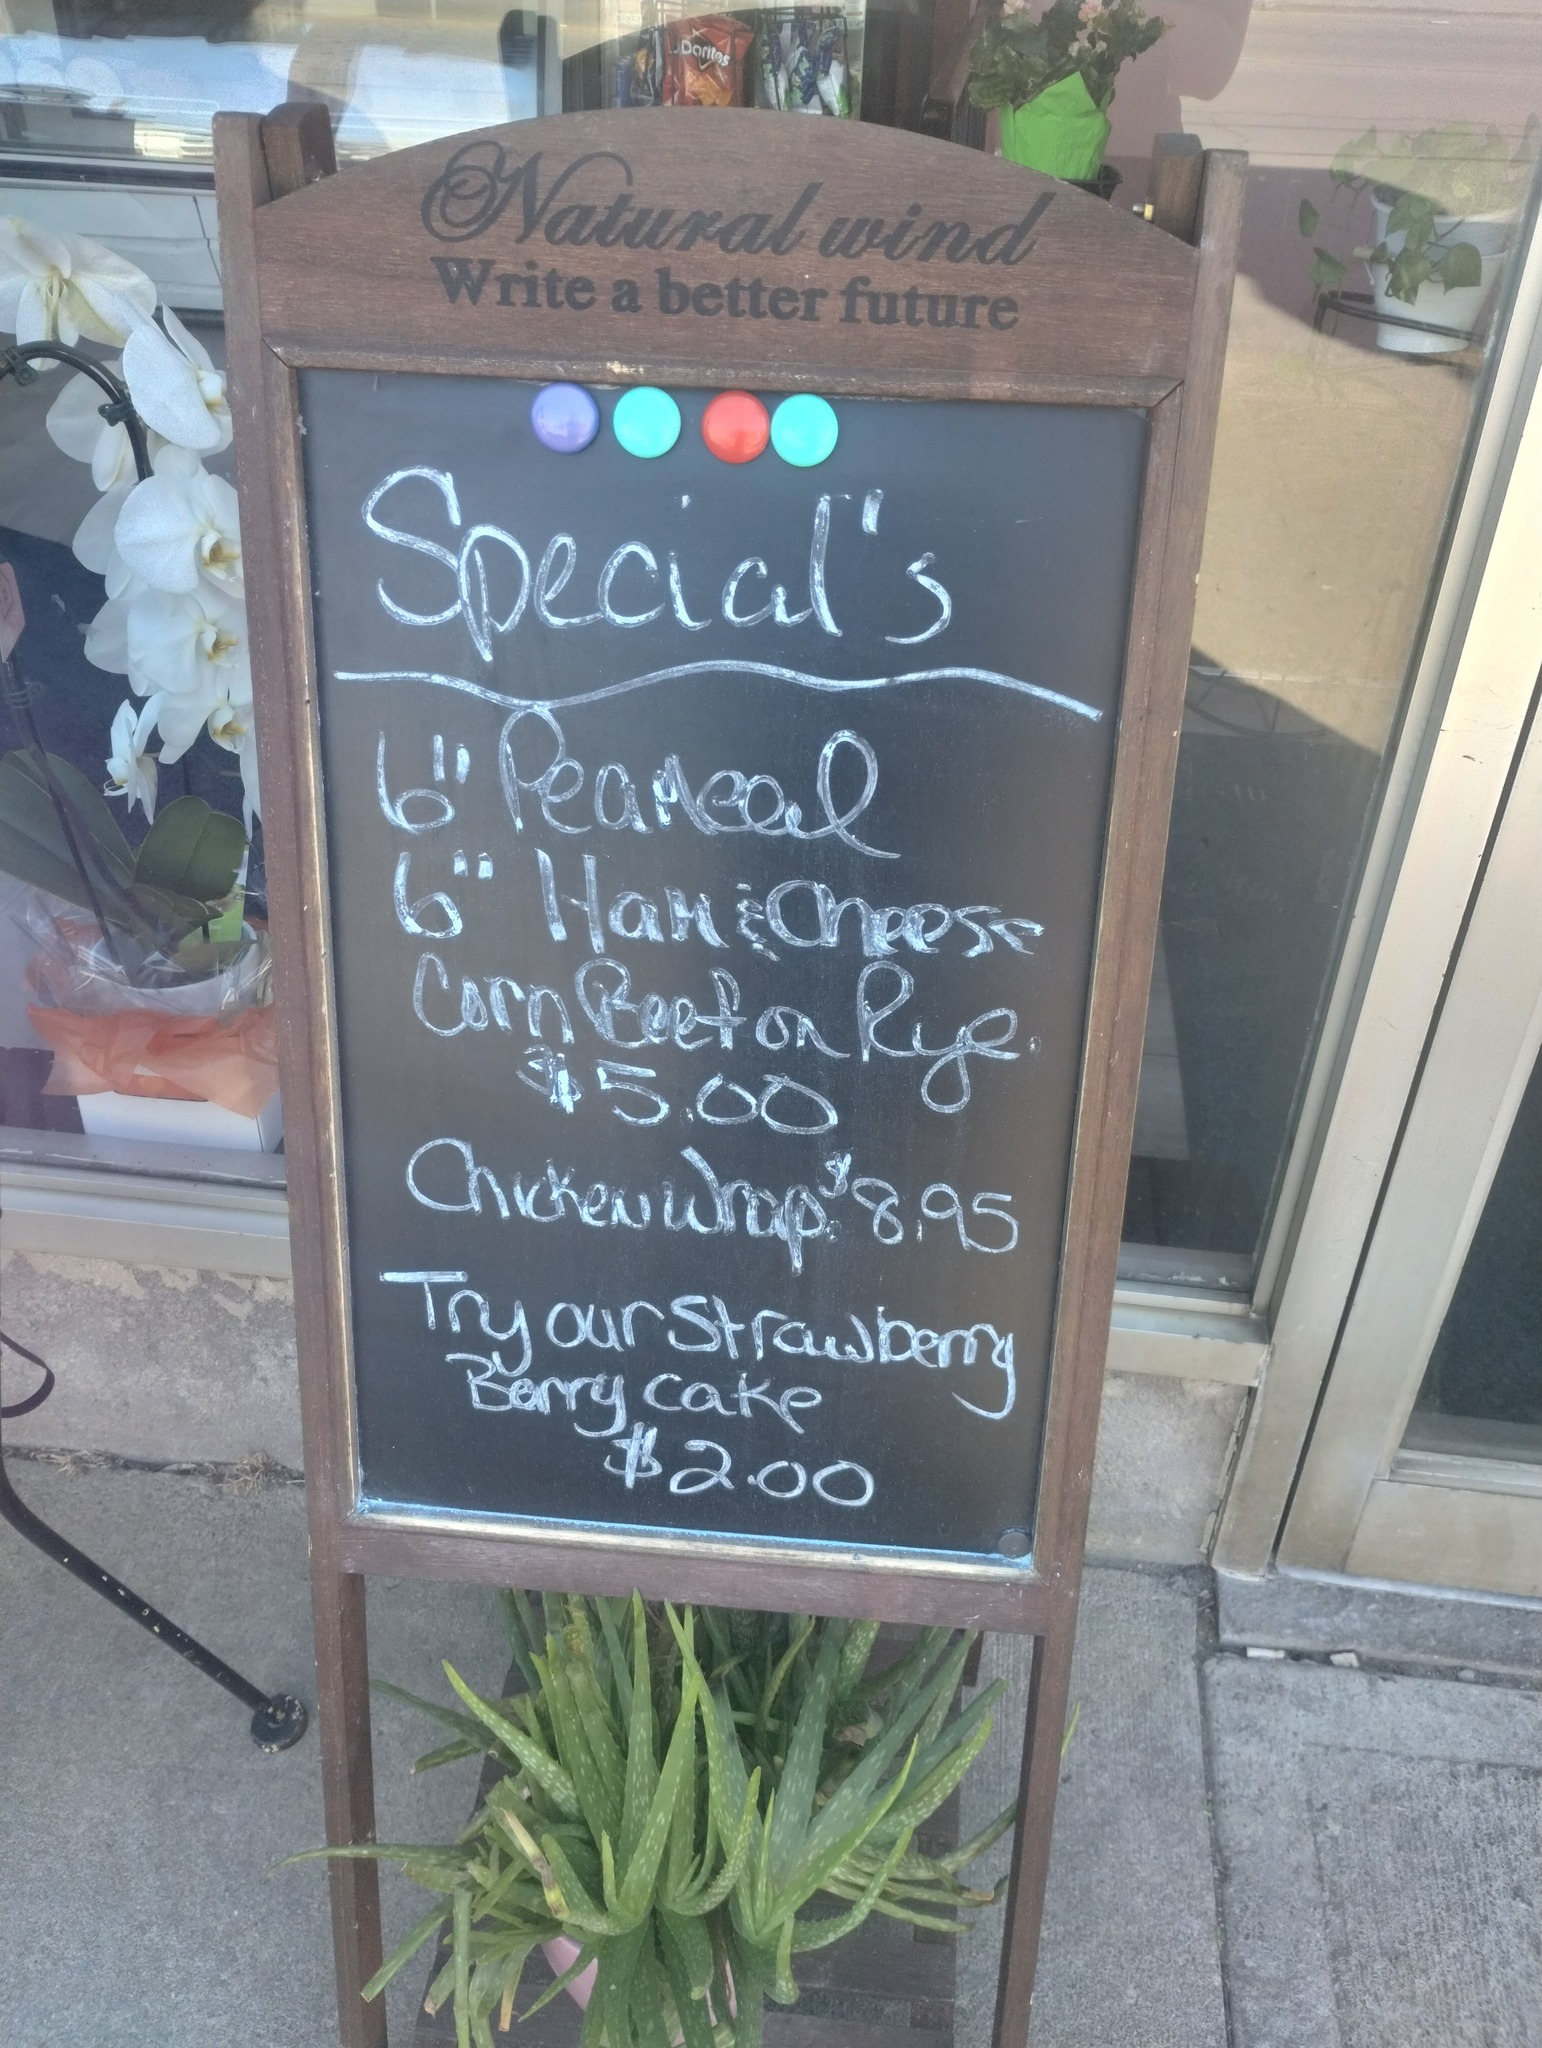 Doritos
Natural wind
Write a better future
Special's
6" Peameal
6" Ham & Cheese
Corn Beef on Rye.
$5.00
Chicken Wrap. $8.95
Try our Strawberry
Berry cake
$2.00